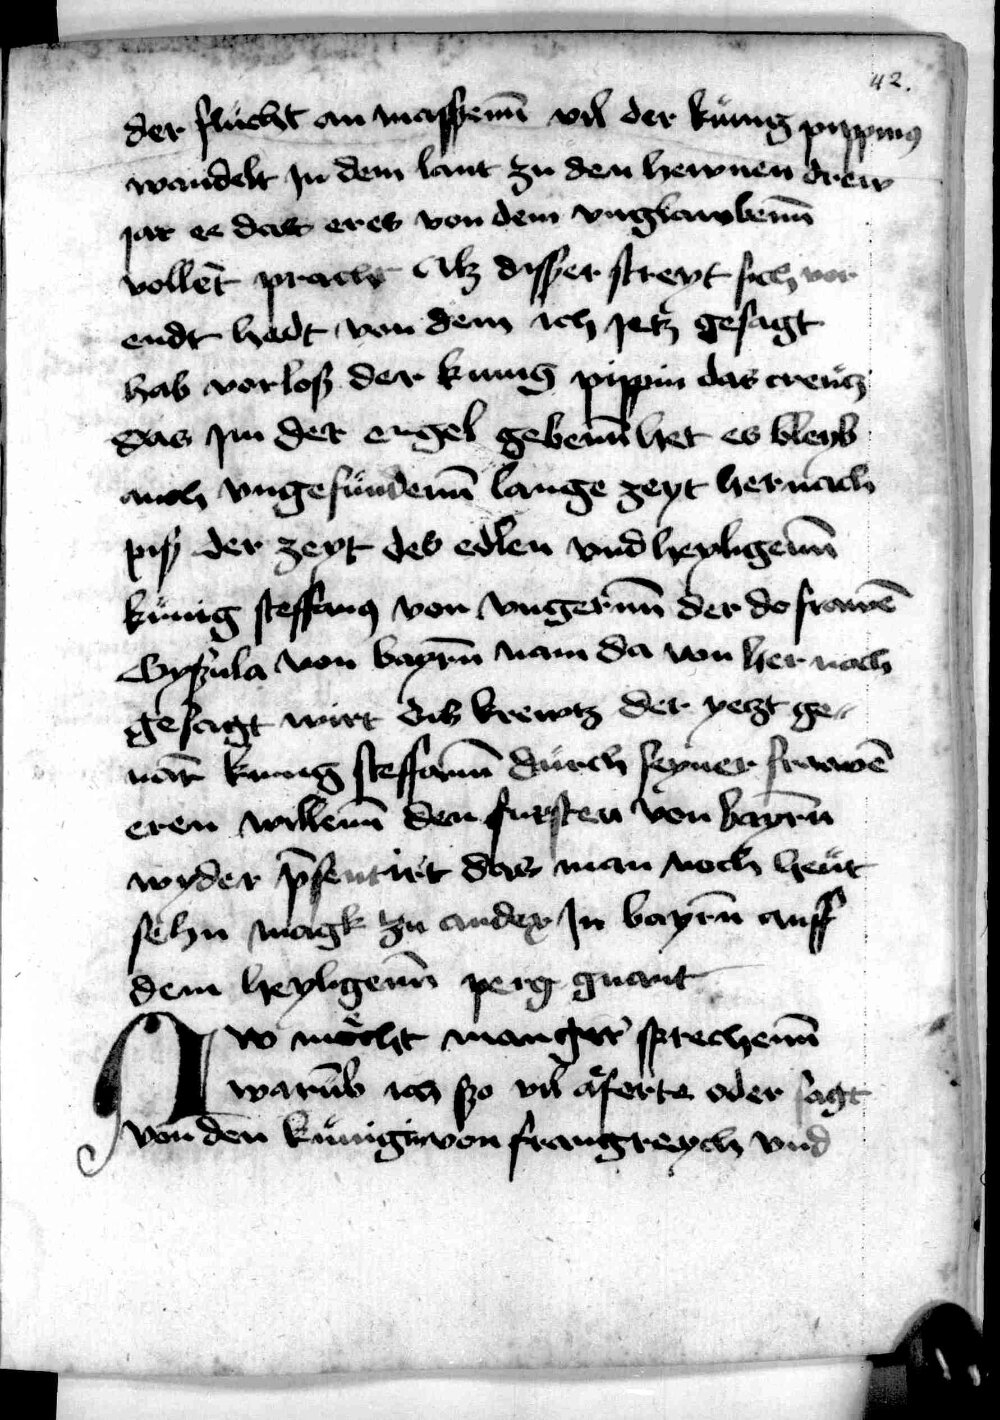 42.
der flücht an massenn̄ vil der künig pippinꝰ
wandelt In dem lant zu den hewnen drew
jar ee das eres von dem vnglawbenn̄
vollēt pracht Alz disser streyt sich vor
endt hedt von dem ich Jetz gesagt
hab vorlosz der kunig pippin das creütz
das Jm der engel gebenn̄ het es bleyb
auch vngefündenn̄ lange zeyt hernach
pisz der zeyt des edlen vnd heyligenn̄
künig steffanꝰ von vngernn̄ der do frawē
Gysula von bayrn̄ nam da von her nach
gesagt wirt dis krewtz der yetzt ge⸗
nāt kunig steffann̄ dürch seyner frawē
eren willenn̄ den fursten von bayrn̄
wyder p̄sentirt das man noch heüt
sehn magk zu andex In bayrn̄ auff
dem heyligenn̄ perg gnant
Nw möcht manger sprechenn̄
warūb ich szo vil äferte oder sagt
von den künigin von frangreych vnd